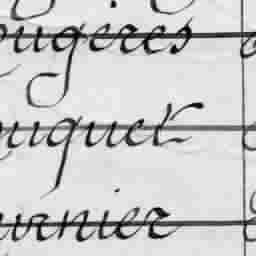 ougeres
ouquet
urnier